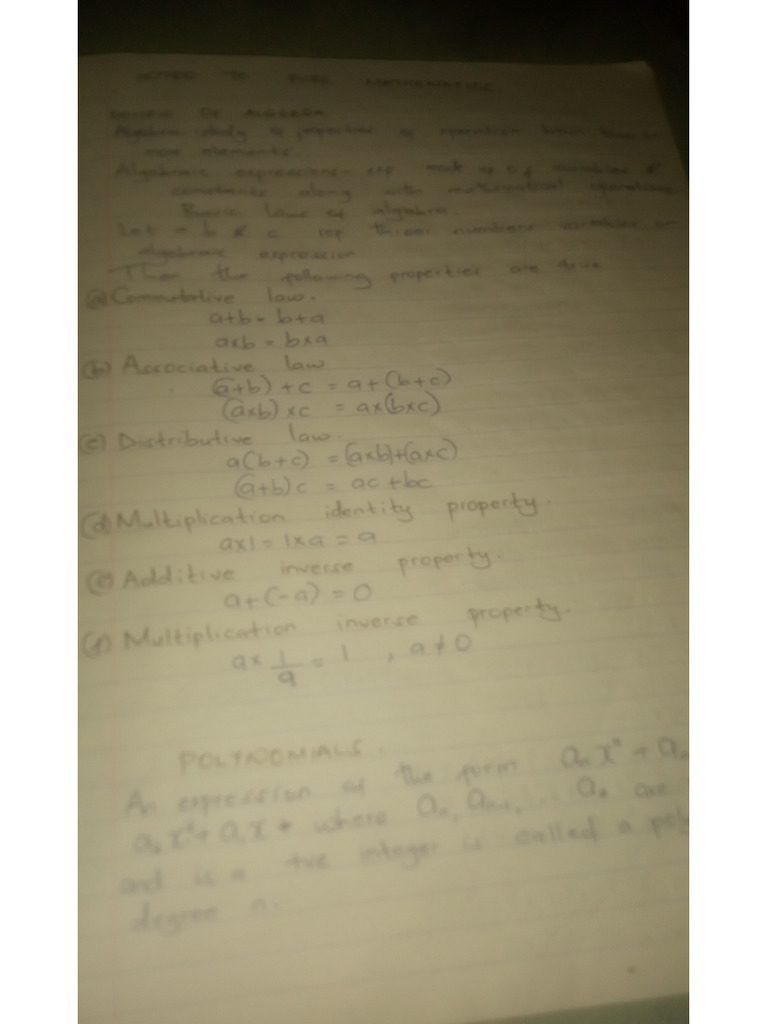 TO PURE MATHEMATICS
REVIEW OF ALGEBRA
Algebra study of properties of operation
more elements.
Algebraic expressions - exp made up of variables &
constants along with mathematical operations
Basic laws of algebra.
Let a b & c rep three numbers variables or
algebraic expression
Then the following properties are true
(a) Commutative law.
a+b = b+a
axb = bxa
(b) Associative law
(a+b) + c = a+(b+c)
(axb) xc = ax(bxc)
(c) Distributive law.
a(b+c) = (axb)+(axc)
(a+b)c = ac +bc
(d) Multiplication identity property.
ax1 = 1xa = a
(e) Additive inverse property.
a+(-a) = 0
(f) Multiplication inverse property.
a× 1/a = 1 , a≠0
POLYNOMIALS.
An expression of the form
where are
and is a +ve integer is called a poly
degree n.